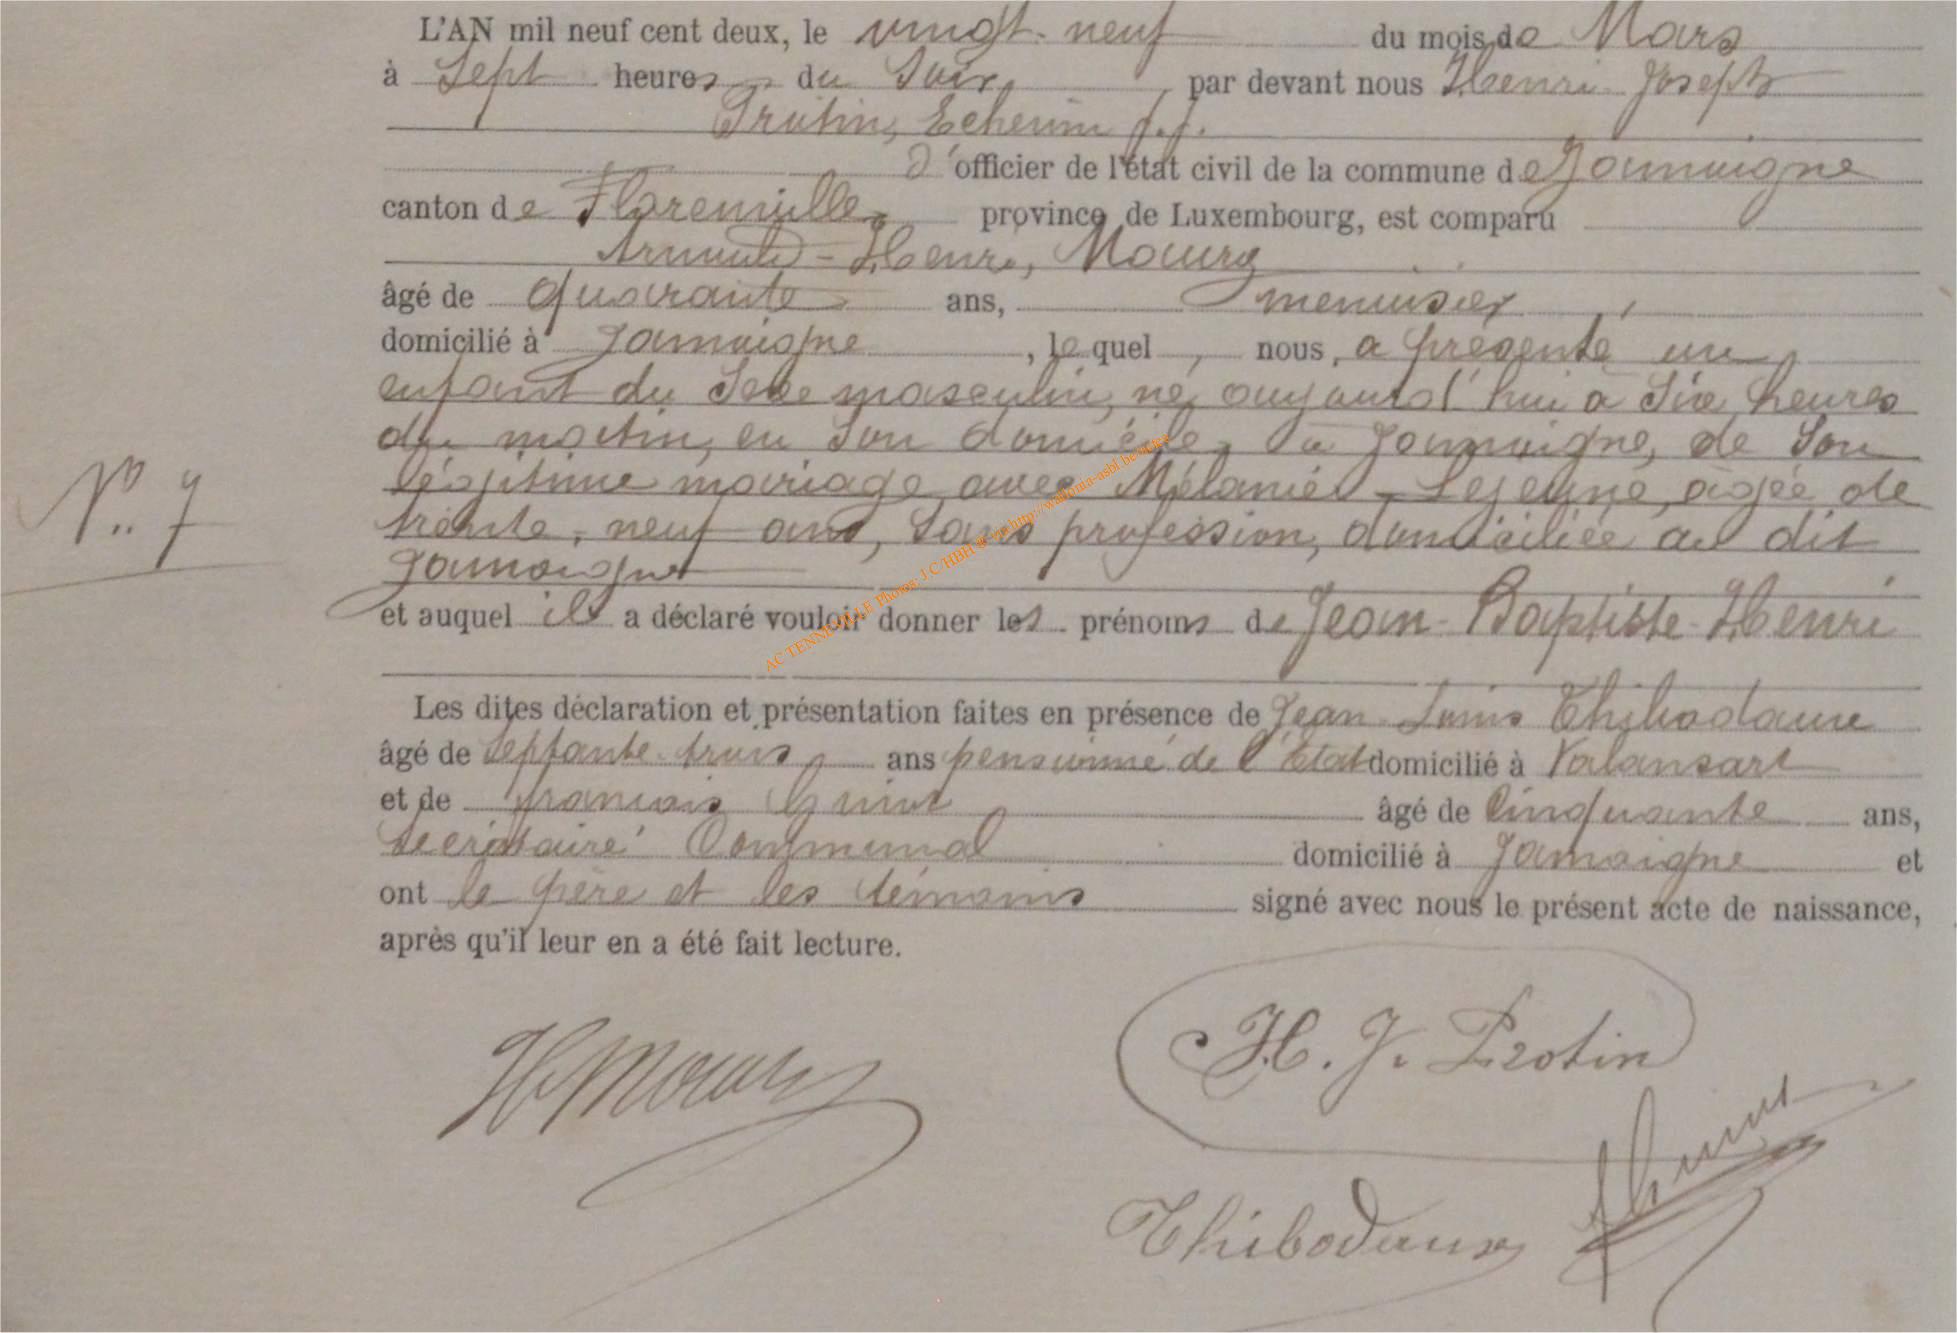 L'AN mil neuf cent deux, le vingt-neuf du mois de Mars
à Sept heures du Soir, par devant nous Henri Joseph
Protin, Echevin f.f.
d'officier de l'état civil de la commune de Jamoigne
canton de Florenville, province de Luxembourg, est comparu
Arnould-Henri, Moury
âgé de quarante ans, menuisier,
domicilié à Jamoigne, lequel, nous, a présenté un
enfant du Sexe masculin, né aujourd'hui à Six heures
du matin, en Son domicile, à Jamoigne, de Son
légitime mariage avec Mélanie Lejeune, âgée de
trente-neuf ans, Sans profession, domiciliée au dit
Jamoigne
N° 7
et auquel il a déclaré vouloir donner les prénoms de Jean-Baptiste-Henri
Les dites déclaration et présentation faites en présence de Jean-Louis Thibodaux
âgé de Septante-trois ans pensionné de l'Etat domicilié à Valansart
et de françois âgé de Cinquante ans,
Secrétaire Communal domicilié à Jamoigne et
ont le père et les témoins signé avec nous le présent acte de naissance,
après qu'il leur en a été fait lecture.
H Moury
H. J. Protin
Thibodaux
AC TENNEVILLE Photos: J.C/HBH & via http://wallonia-asbl.be